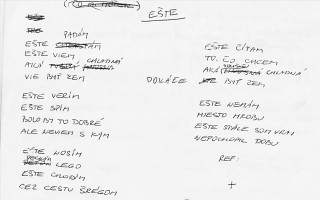 EŠTE
PADÁM
EŠTE STÁM
EŠTE VIEM
AKÁ CHLADNÁ
VIE BYŤ ZEM
EŠTE VERÍM
EŠTE SPÍM
BOLO BY TO DOBRÉ
ALE NEVIEM S KÝM
EŠTE NOSÍM
LEGO
EŠTE CHODÍM
CEZ CESTU ŠREGOM
DOKÁŽE
EŠTE ČÍTAM
TO, ČO CHCEM
AKÁ CHLADNÁ
BYŤ ZEM
EŠTE NEMÁM
MIESTO HROBU
EŠTE STÁLE SOM
NEPOCHOPIL DOBU
REF:
+